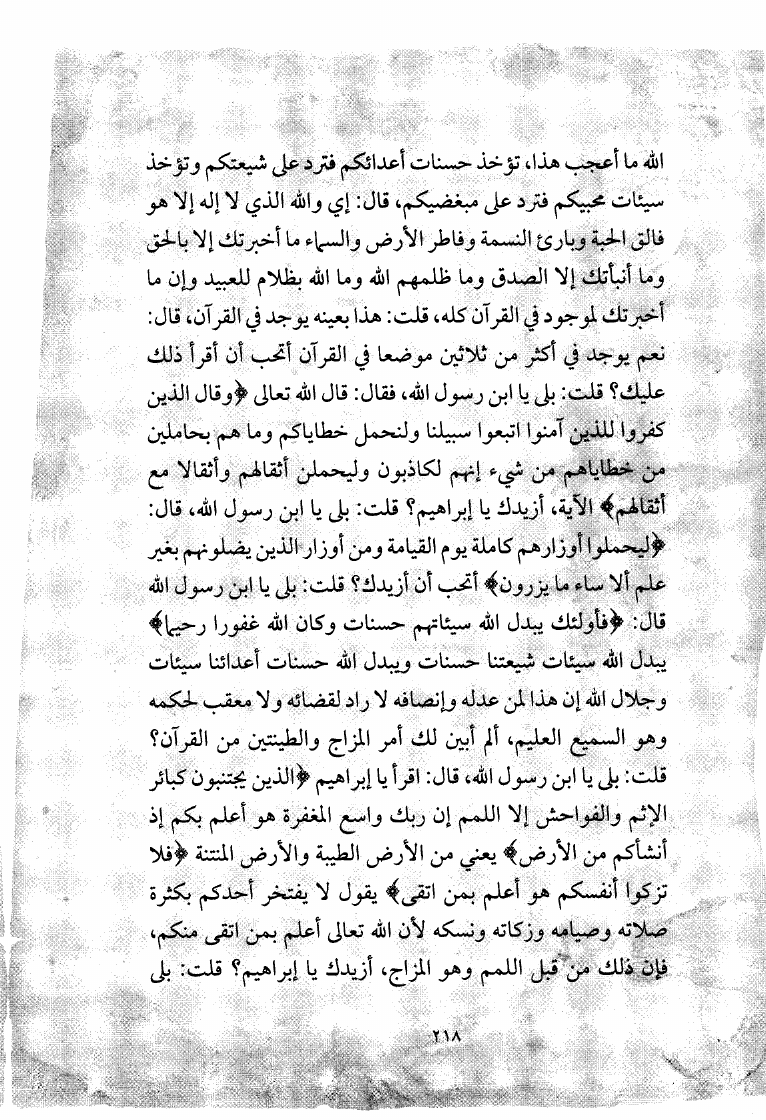 الله ما أعجب هذا، تؤخذ حسنات أعدائكم فترد على شيعتكم وتؤخذ
سيئات محبيكم فترد على مبغضيكم، قال: إي والله الذي لا إله إلا هو
فالق الحبة وبارئ النسمة وفاطر الأرض والسماء ما أخبرتك إلا بالحق
وما أنبأتك إلا الصدق وما ظلمهم الله وما الله بظلام للعبيد وإن ما
أخبرتك لموجود في القرآن كله، قلت: هذا بعينه يوجد في القرآن، قال:
نعم يوجد في أكثر من ثلاثين موضعا في القرآن أتحب أن أقرأ ذلك
عليك؟ قلت: بلى يا ابن رسول الله، فقال: قال الله تعالى ﴿وقال الذين
كفروا للذين آمنوا اتبعوا سبيلنا ولنحمل خطاياكم وما هم بحاملين
من خطاياهم من شيء إنهم لكاذبون وليحملن أثقالهم وأثقالا مع
أثقالهم﴾ الآية، أزيدك يا إبراهيم؟ قلت: بلى يا ابن رسول الله، قال:
﴿ليحملوا أوزارهم كاملة يوم القيامة ومن أوزار الذين يضلونهم بغير
علم ألا ساء ما يزرون﴾ أتحب أن أزيدك؟ قلت: بلى يا ابن رسول الله
قال: ﴿فأولئك يبدل الله سيئاتهم حسنات وكان الله غفورا رحيما﴾
يبدل الله سيئات شيعتنا حسنات ويبدل الله حسنات أعدائنا سيئات
وجلال الله إن هذا لمن عدله وإنصافه لا راد لقضائه ولا معقب لحكمه
وهو السميع العليم، ألم أبين لك أمر المزاج والطينتين من القرآن؟
قلت: بلى يا ابن رسول الله، قال: اقرأ يا إبراهيم ﴿الذين يجتنبون كبائر
الإثم والفواحش إلا اللمم إن ربك واسع المغفرة هو أعلم بكم إذ
أنشأكم من الأرض﴾ يعني من الأرض الطيبة والأرض المنتنة ﴿فلا
تزكوا أنفسكم هو أعلم بمن اتقى﴾ يقول لا يفتخر أحدكم بكثرة
صلاته وصيامه وزكاته ونسكه لأن الله تعالى أعلم بمن اتقى منكم،
فإن ذلك من قبل اللمم وهو المزاج، أزيدك يا إبراهيم؟ قلت: بلى
٢١٨